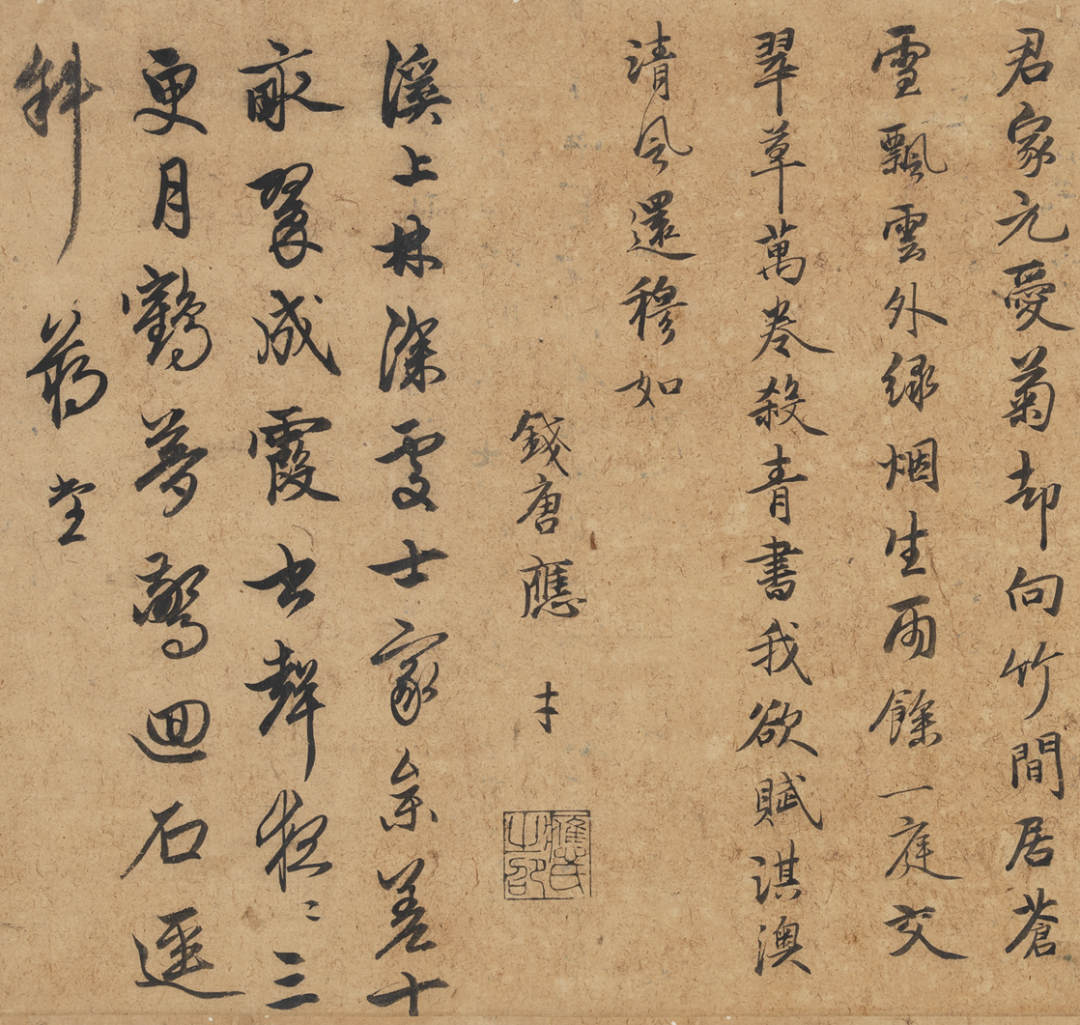 君家元愛菊却向竹間居蒼
雪飄雲外緑烟生雨餘一庭交
翠草萬卷殺青書我欲賦淇澳
清風還穆如
錢唐應才
應氏之
溪上林深處士家參差十
畝翠成霞書聲夜〻三
更月鶴夢驚迴石逕
斜 蔣堂